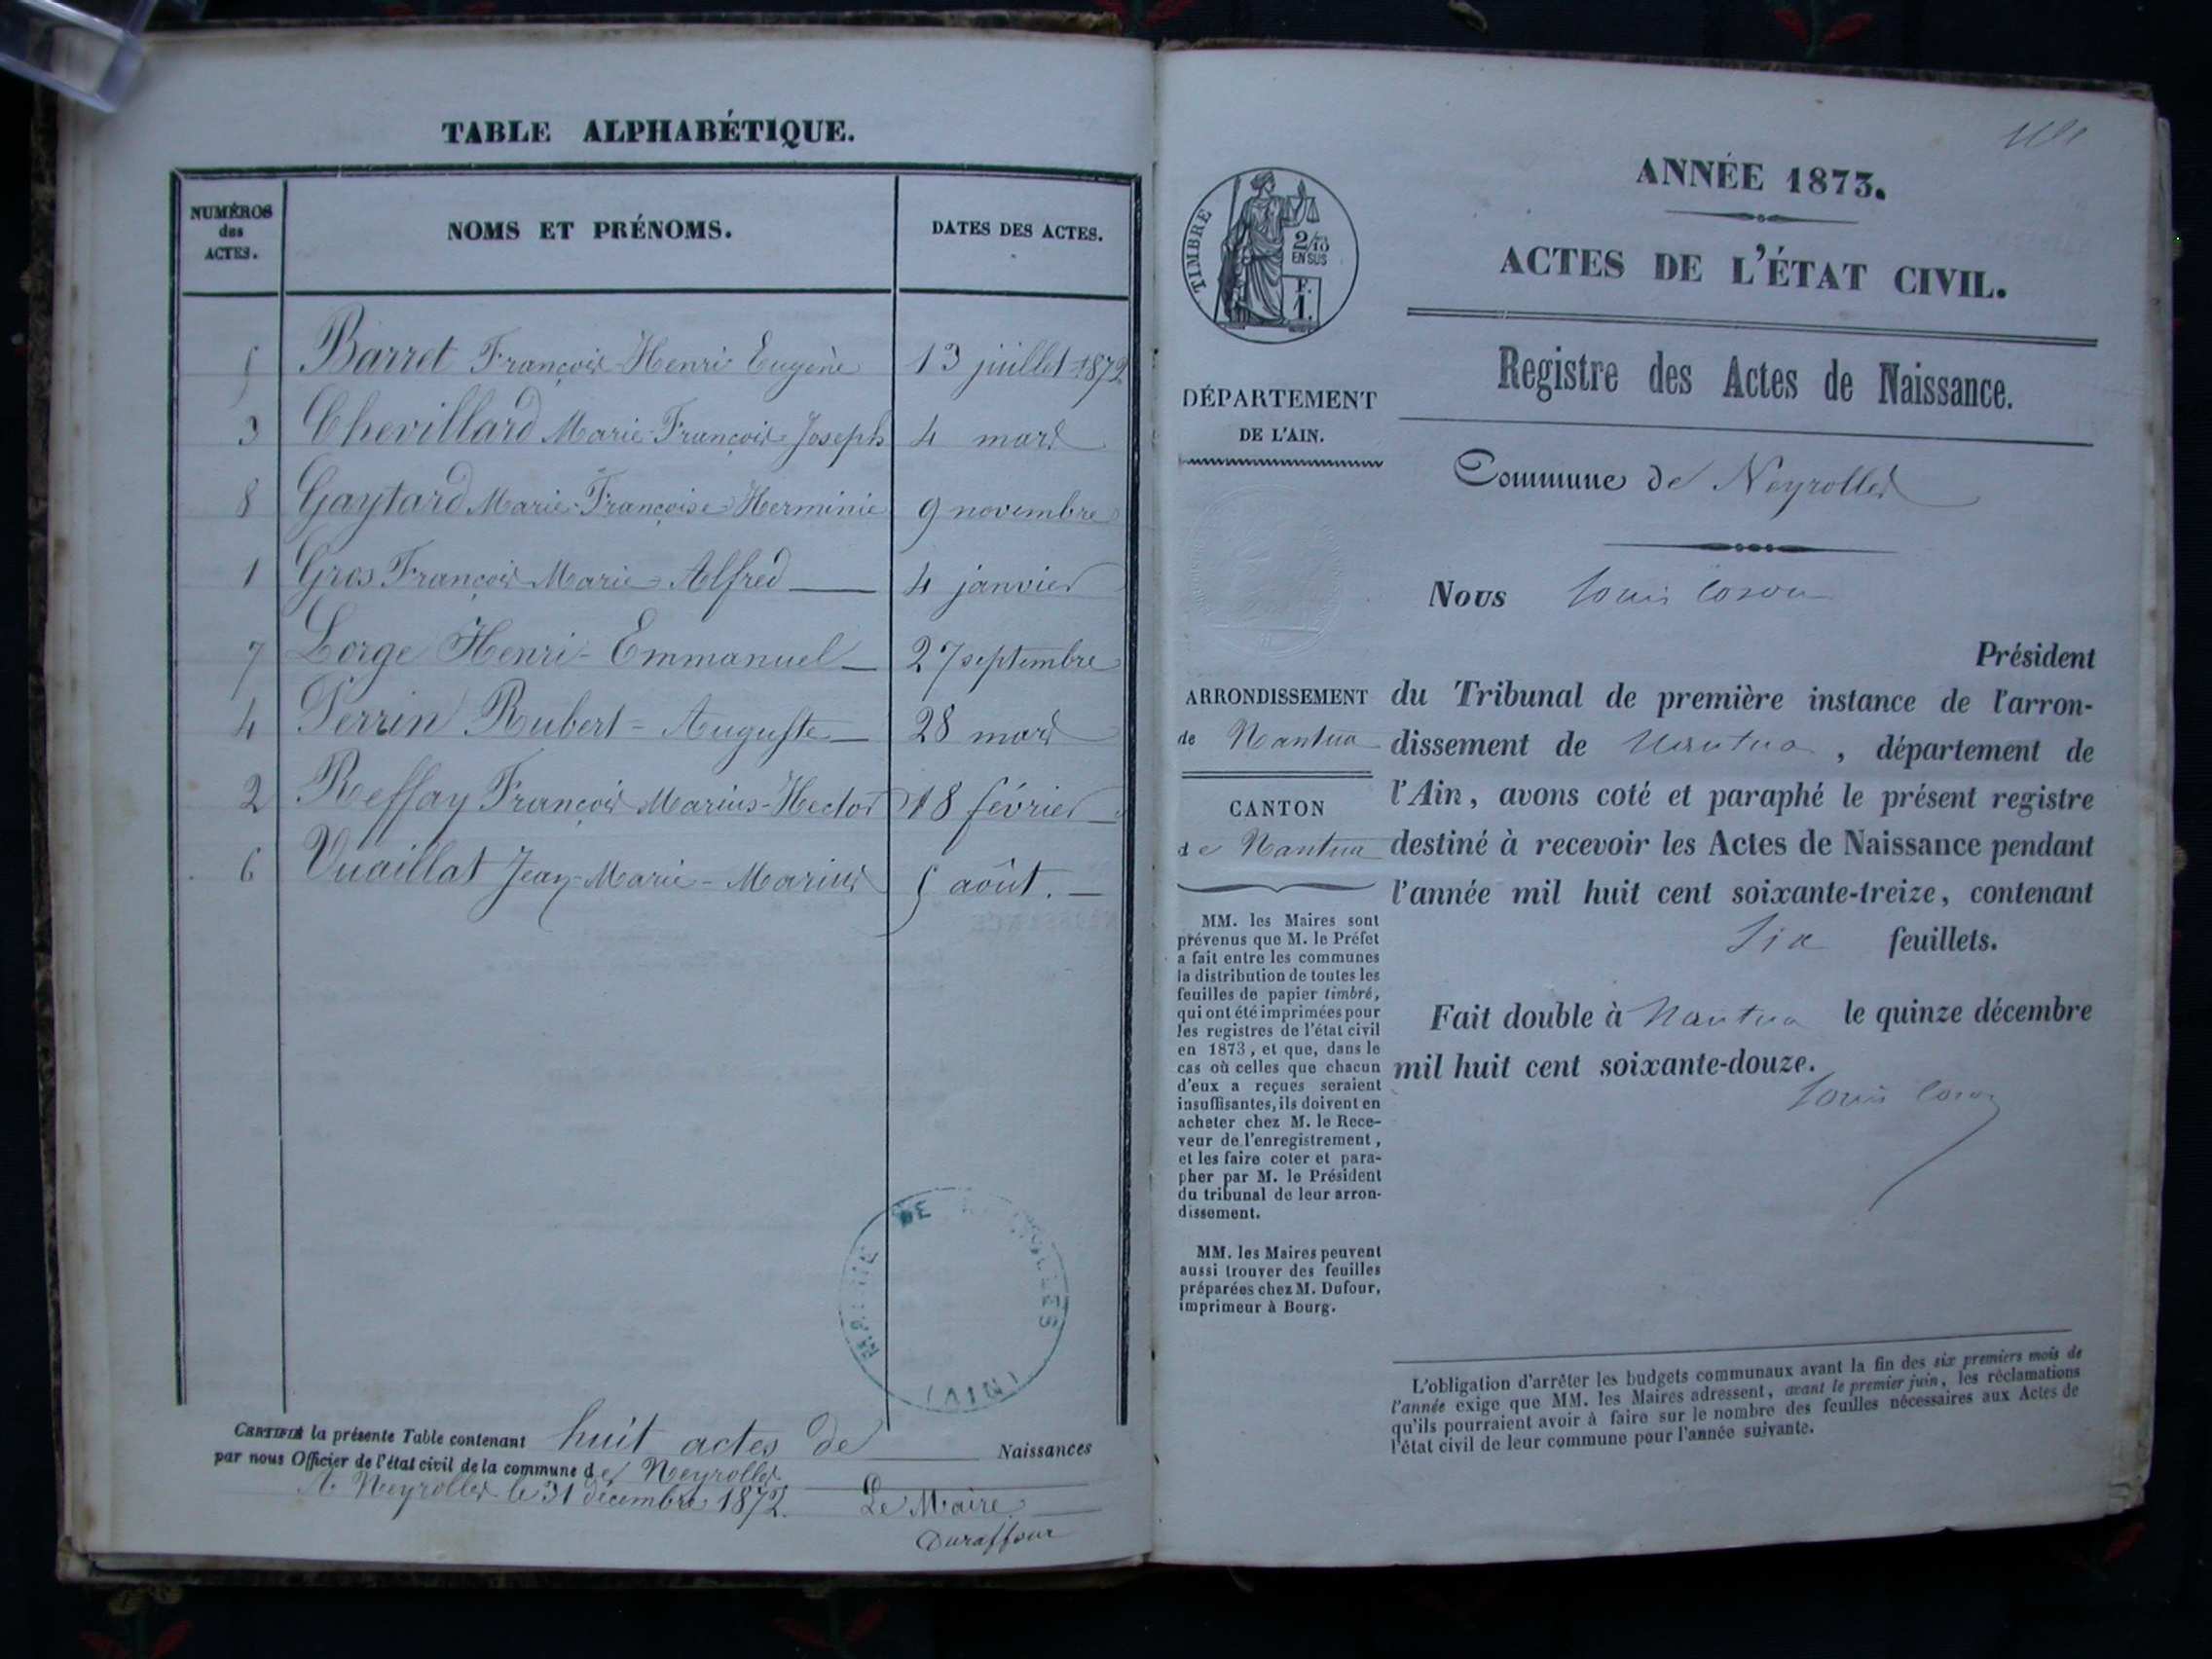 TABLE ALPHABÉTIQUE.
NUMÉROS des ACTES.
NOMS ET PRÉNOMS.
DATES DES ACTES.
5 Barret François Henri Eugène 13 juillet 1872
3 Chevillard Marie-François-Joseph 4 mars
8 Gaytard Marie-Françoise-Herminie 9 novembre
1 Gros François Marie-Alfred 4 janvier
7 Lorge Henri-Emmanuel 27 septembre
4 Perrin Rubert-Auguste 28 mars
2 Reffay François Marius-Hector 18 février
6 Vuaillat Jean-Marie-Marius 5 août.
MAIRIE DE NEYROLLES
(AIN)
CERTIFIÉ la présente Table contenant huit actes de Naissances
par nous Officier de l'état civil de la commune des Neyrolles
A Neyrolles le 31 décembre 1872. Le Maire
Duraffour
ANNÉE 1873.
ACTES DE L'ÉTAT CIVIL.
TIMBRE
2/10
EN SUS
F.
1.
Registre des Actes de Naissance.
DÉPARTEMENT
DE L'AIN.
Commune de Neyrolles
Nous Louis
Président
ARRONDISSEMENT
de Nantua
CANTON
de Nantua
du Tribunal de première instance de l'arron-
dissement de Nantua, département de
l'Ain, avons coté et paraphé le présent registre
destiné à recevoir les Actes de Naissance pendant
l'année mil huit cent soixante-treize, contenant
Six feuillets.
Fait double à Nantua le quinze décembre
mil huit cent soixante-douze.
Louis
MM. les Maires sont
prévenus que M. le Préfet
a fait entre les communes
la distribution de toutes les
feuilles de papier timbré,
qui ont été imprimées pour
les registres de l'état civil
en 1873, et que, dans le
cas où celles que chacun
d'eux a reçues seraient
insuffisantes, ils doivent en
acheter chez M. le Rece-
veur de l'enregistrement,
et les faire coter et para-
pher par M. le Président
du tribunal de leur arron-
dissement.
MM. les Maires peuvent
aussi trouver des feuilles
préparées chez M. Dufour,
imprimeur à Bourg.
L'obligation d'arrêter les budgets communaux avant la fin des six premiers mois de
l'année exige que MM. les Maires adressent, avant le premier juin, les réclamations
qu'ils pourraient avoir à faire sur le nombre des feuilles nécessaires aux Actes de
l'état civil de leur commune pour l'année suivante.